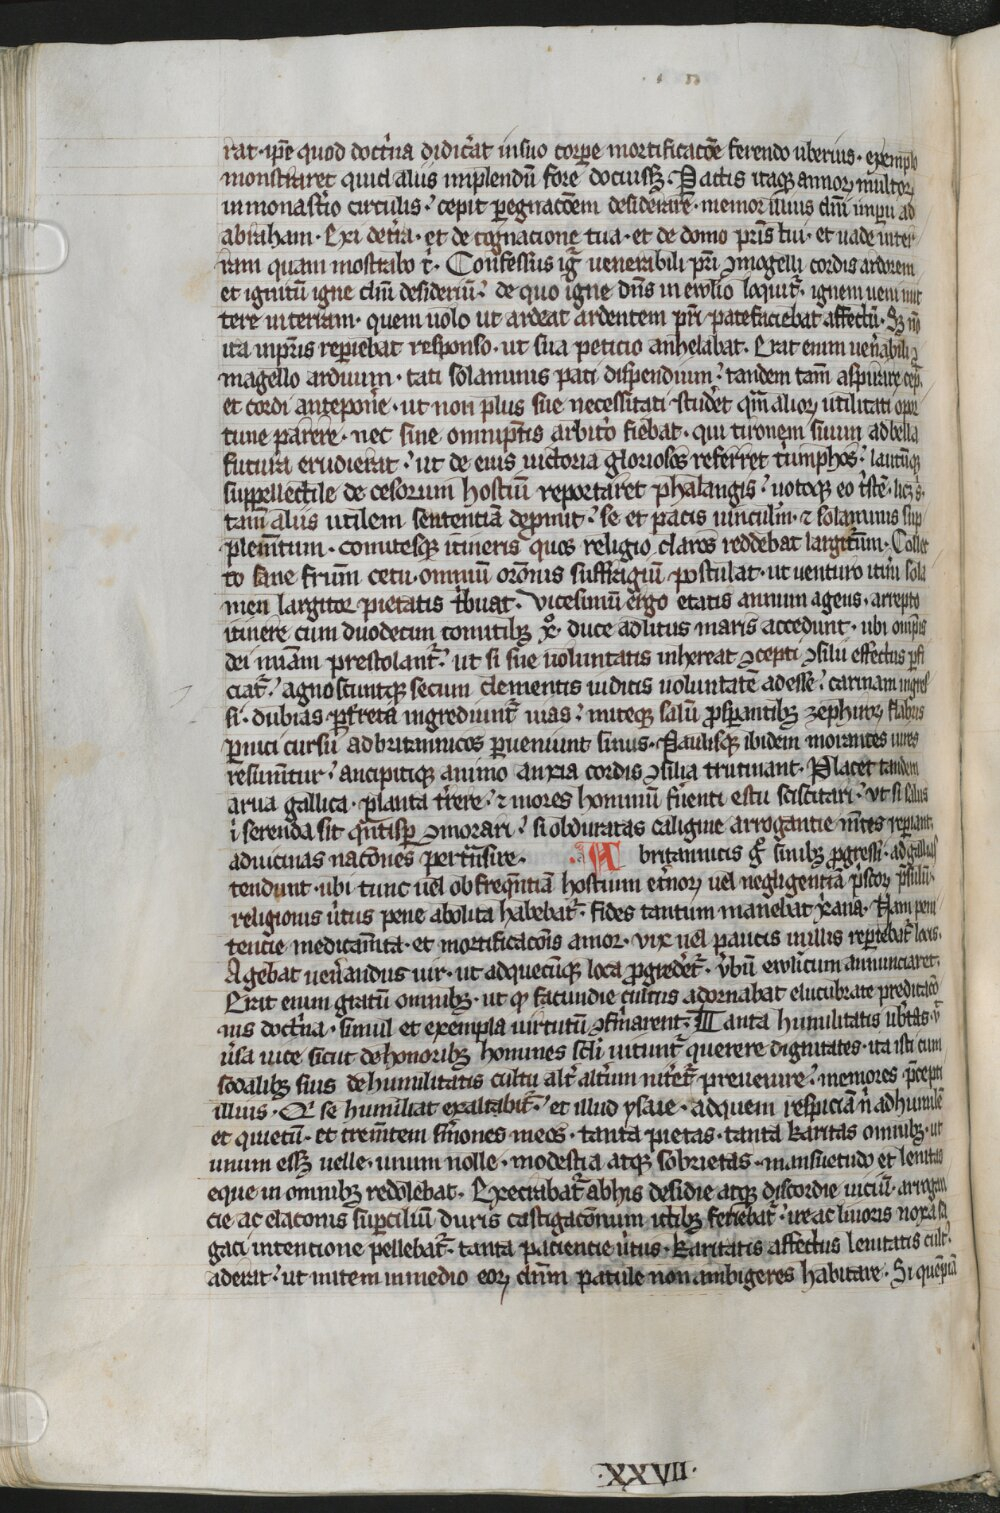 rat · ip̄e quod doctͥna didic̄at in suo corꝑe mortificacōe ferendo uberius · exemplo
monstraret quid aliis implendū fore docuissꝫ · Pactis itaqꝫ annoꝝ multoꝝ
in monast̄io circulis · cepit ꝑegnacōem desiderare · memor illius dn̄i imꝑii ad
abraham · Exi de t̄ra · et de cognacione tua · et de domo pr̄is tui · et uade in ter
ram quam mostrabo t̄ · Confessus igr̄ venerabili pr̄i ꝯmogelli cordis ardorem
et ignitū igne dn̄i desideriū · de quo igne dn̄s in ewl̄io loquit̄ · ignem ueni mit
tere in terram · quem uolo ut ardeat ardentem pr̄i patefaciebat affectū · Sꝫ nō
ita in pr̄is reperiebat responso · ut sua peticio anhelabat · Erat enim uen̄abili ꝯ
magello arduum · tati solaminis pati dispendium · tandem tam̄ aspirare cep̄
et cordi anteponͥe · ut non plus sue necessitati studēt qm̄ alioꝝ utilitati opor
tune parere · nec sine omnipn̄tis arbitͥo fiebat · qui tironem suum ad bella
futura erudierat · ut de eius uictoria gloriosos referret tͥumphos · lautūqꝫ
suppellectile de cesorum hostiū reportaret phalangis · uotoqꝫ eo tͥste · licꝫ s̄
tam̄ aliis utilem sententiā depmit · se et pacis uinculūm · ⁊ solaminis sup
plem̄tum · comitesqꝫ itineris quos religio claros reddebat largitͥum · Collec
to sane frūm cetu · omniū orōnis suffragiū postulat · ut venturo itin̄i sola
men largitor pietatis tͥbuat · Vicesimū ergo etatis annum agens · arrepto
itinere cum duodecim comitibꝫ x̊ · duce ad litus maris accedunt · ubi omp̄is
dei mi̅am prestolant̄ · ut si sue uoluntatis inhereat ꝯcepti ꝯsilii effectus ꝑfi
ciat̄ · agnoscuntqꝫ secum clementis iudicis uoluntatē adesse · carinam ingres
si · dubias · ꝑ freta ingrediunt̄ uias · miteqꝫ salū ꝓsꝑantibꝫ zephiroꝝ flabris
ꝑnici cursu ad britannicos ꝑueniunt sinus · Paulisꝫ ibidem morantes uires
resumūtur · ancipitiqꝫ animo anxia cordis ꝯsilia trutinant · Placet tandem
arua gallica · planta tͥrere · ⁊ mores hominū fr̄uenti estu sciscitari · ut si salus
ī serenda sit qͣntisꝑ ꝯmorari · si obduratas caligine arrogantie m̄tes reꝑiant
ad uicinas nacōnes ꝑtͣnsire · A britannicis gͦ sinibꝫ ꝓgressi · ad gallias
tendunt · ubi tunc uel ob freqn̄tiā hostium et̄noꝝ uel negligentiā pͥscoꝝ p̄sulū ·
religionis u̅tus pene abolita habebat̄ · fides tantum manebat x̄ana · Nam peni
tencie medicam̄ta · et mortificacōis amor · vix uel paucis in illis reꝑiebat̄ locis ·
Agebat uen̄andus uir · ut ad quecūqꝫ loca ꝓgredet̄ · v̄bū ewl̄icum annunciaret ·
Erat enim gratū omnibꝫ · ut qͦ facundie cultus adornabat elucubrate predicacō
nis doctͥna · simul et exempla uirtutū ꝯfirmarent · Tanta humilitatis ub̄tas · v̄
ur̄sa uice sicut de honoribꝫ homines sc̄li nitunt̄ querere dignitates · ita isti cum
sodalibꝫ suis de humilitatis cultu alt̄ alt̄um nitet̄ preuenire · memores p̄cepti
illius · Qͥ se humiliat exaltabit̄ · et illud ysaie · ad quem respiciā n̄ ad humilē
et quietū · et trem̄tem sm̄ones meos · tanta pietas · tanta karitas omnibꝫ · ut
unum essꝫ uelle · unum nolle · modestia atqꝫ sobrietas · mansuetudo et lenitas
eque in omnibꝫ redolebat · Execrabat̄ ab his desidie atqꝫ discordie uiciū · arrogan
cie ac elaconis suꝑciliū duris castigacōnum ictibꝫ feriebat̄ · ire ac liuoris noxa sa
gaci intentione pellebat̄ · tanta paciencie u̅tus · karitatis affectus lenitatis cult̾
aderat · ut mitem in medio eoꝝ dn̄m patule non ambigeres habitare · Si quēpiā
·XXVII·